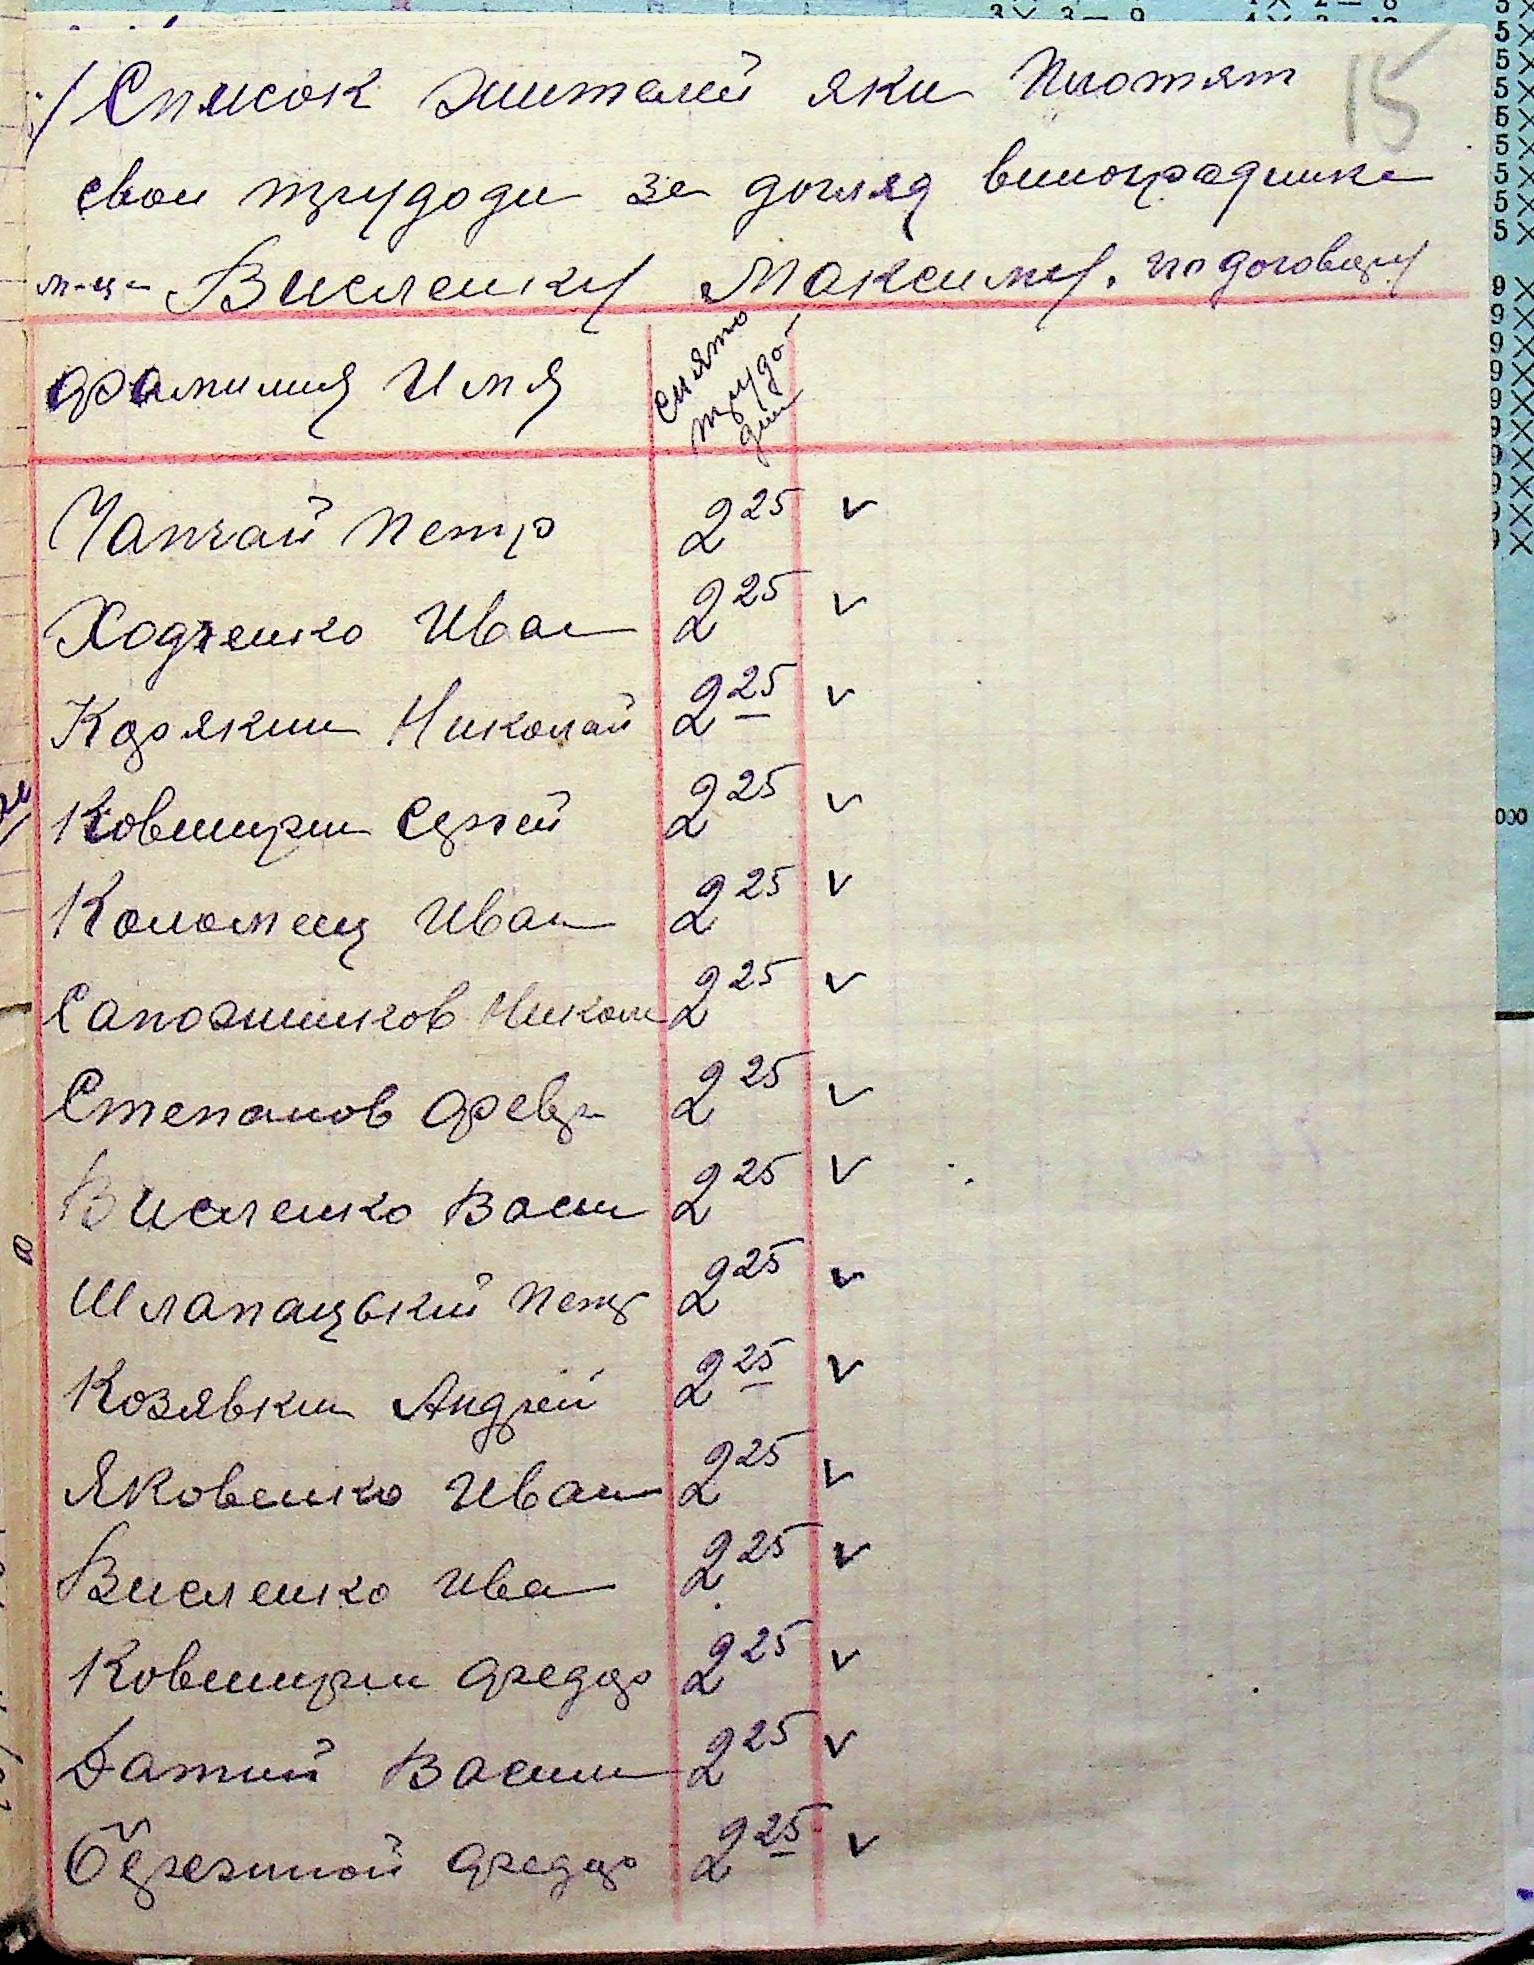 15
Список жителей яки платят
свои трудодни за догляд виноградника
м-ц- Висленку Максиму. по договору
Фамилия Имя
снято трудо-дни
Чапчай Петр 2 25 v
Ходченко Иван 2 25 v
Корякин Николай 2 25 v
Ковширин Сергей 2 25 v
Коломеец Иван 2 25 v
Сапожников Никол 2 25 v
Степанов 2 25 v
Висленко Васи 2 25 v
Шлапацький Петр 2 25 v
Козявкин Андрей 2 25 v
Яковенко Иван 2 25 v
Висленко Ива 2 25 v
Ковширин Федор 2 25 v
Датий Васили 2 25 v
Бережной Федор 2 25 v